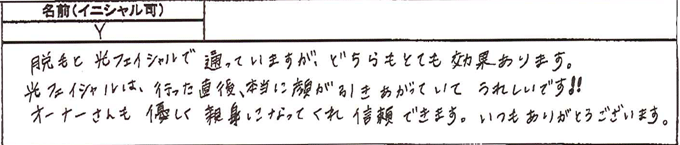 名前(イニシャル可)
Y
脱毛と光フェイシャルで通っていますが、どちらもとても効果あります。
光フェイシャルは、行った直後、本当に顔が引きあがっていてうれしいです!!
オーナーさんも優しく親身になってくれ信頼できます。いつもありがとうございます。